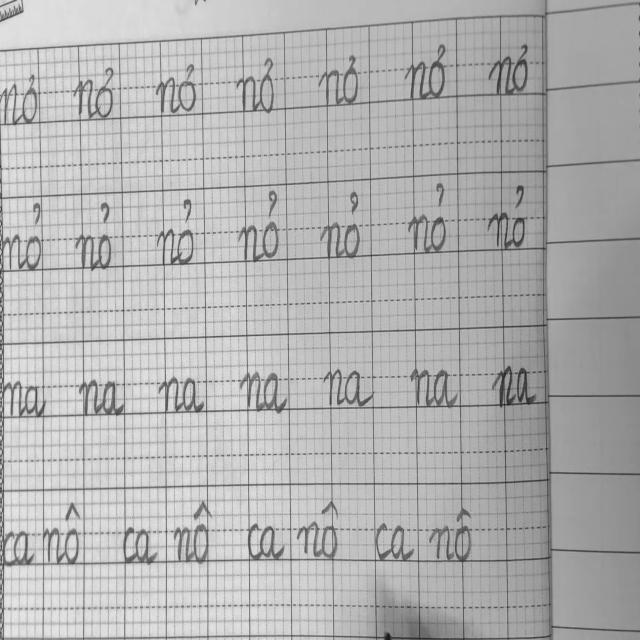 nỏ nỏ nỏ nỏ nỏ nỏ nỏ
nỏ nỏ nỏ nỏ nỏ nỏ nỏ
na na na na na na na
ca nô ca nô ca nô ca nô